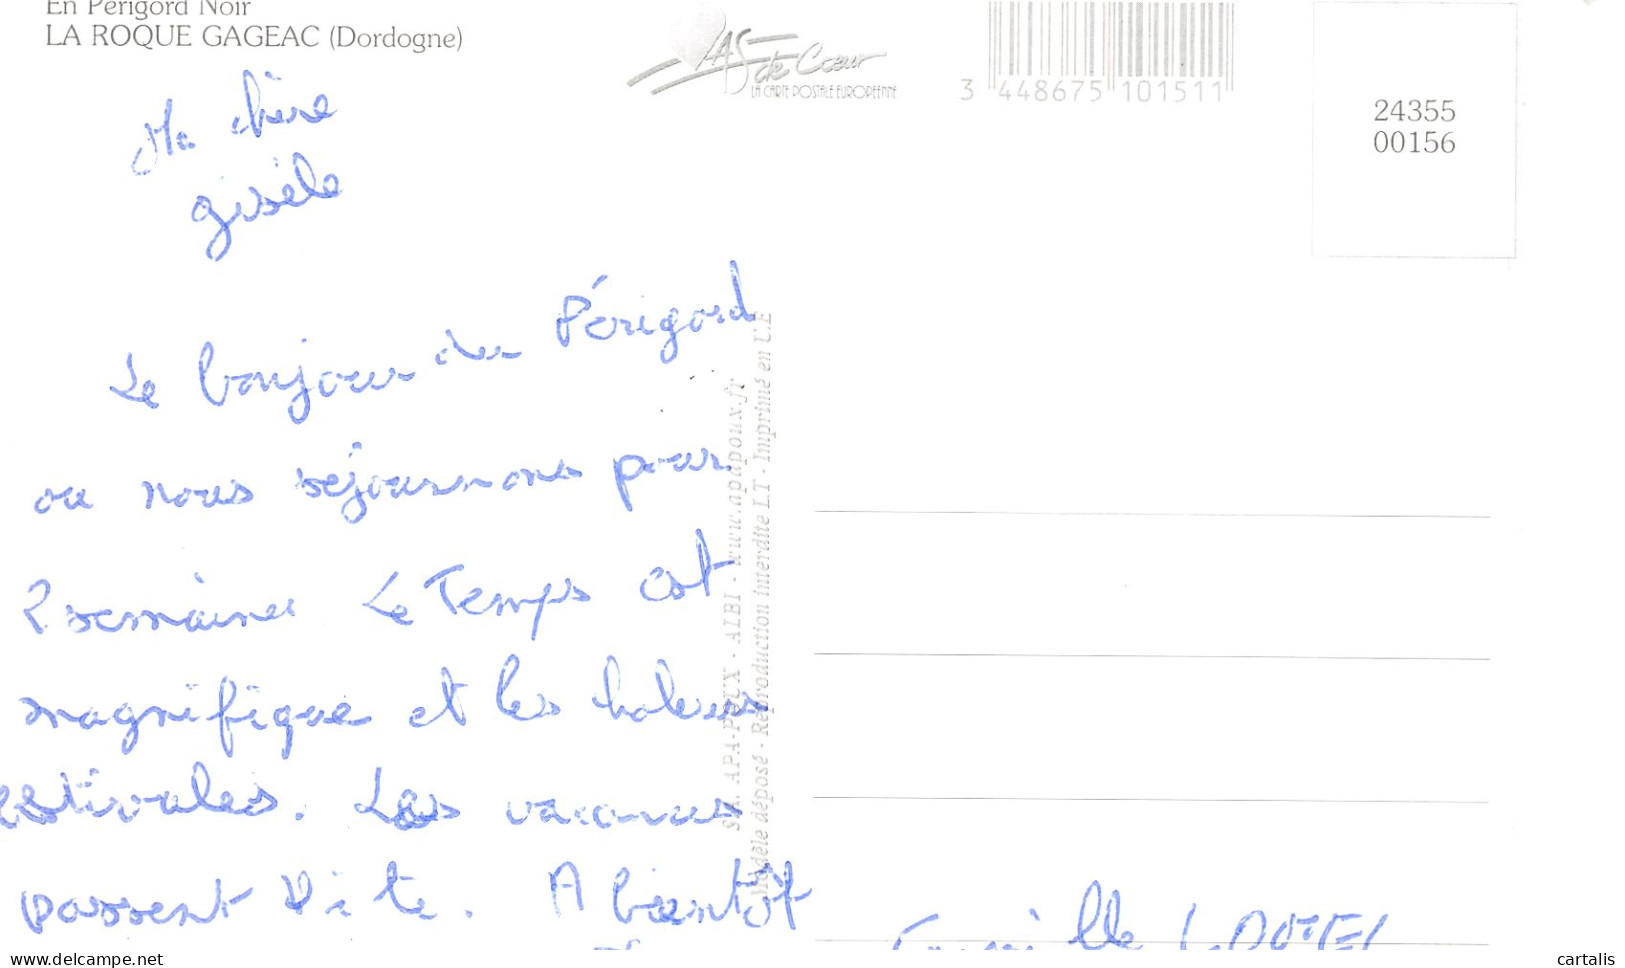 En Périgord Noir
LA ROQUE GAGEAC (Dordogne)
AS de Cœur
LA CARTE POSTALE EUROPÉENNE
3 448675 101511
24355
00156
Ma chère
gisèle
Le bonjour du Périgord
ou nous séjournons pour
2 semaines Le Temps est
magnifique et les chaleurs
estivales. Les vacances
passent vite. A bientôt
Famille
S.A. APA-POUX - ALBI - www.apapoux.fr
Modèle déposé - Reproduction interdite LT - Imprimé en U.E
delcampe.net
cartalis